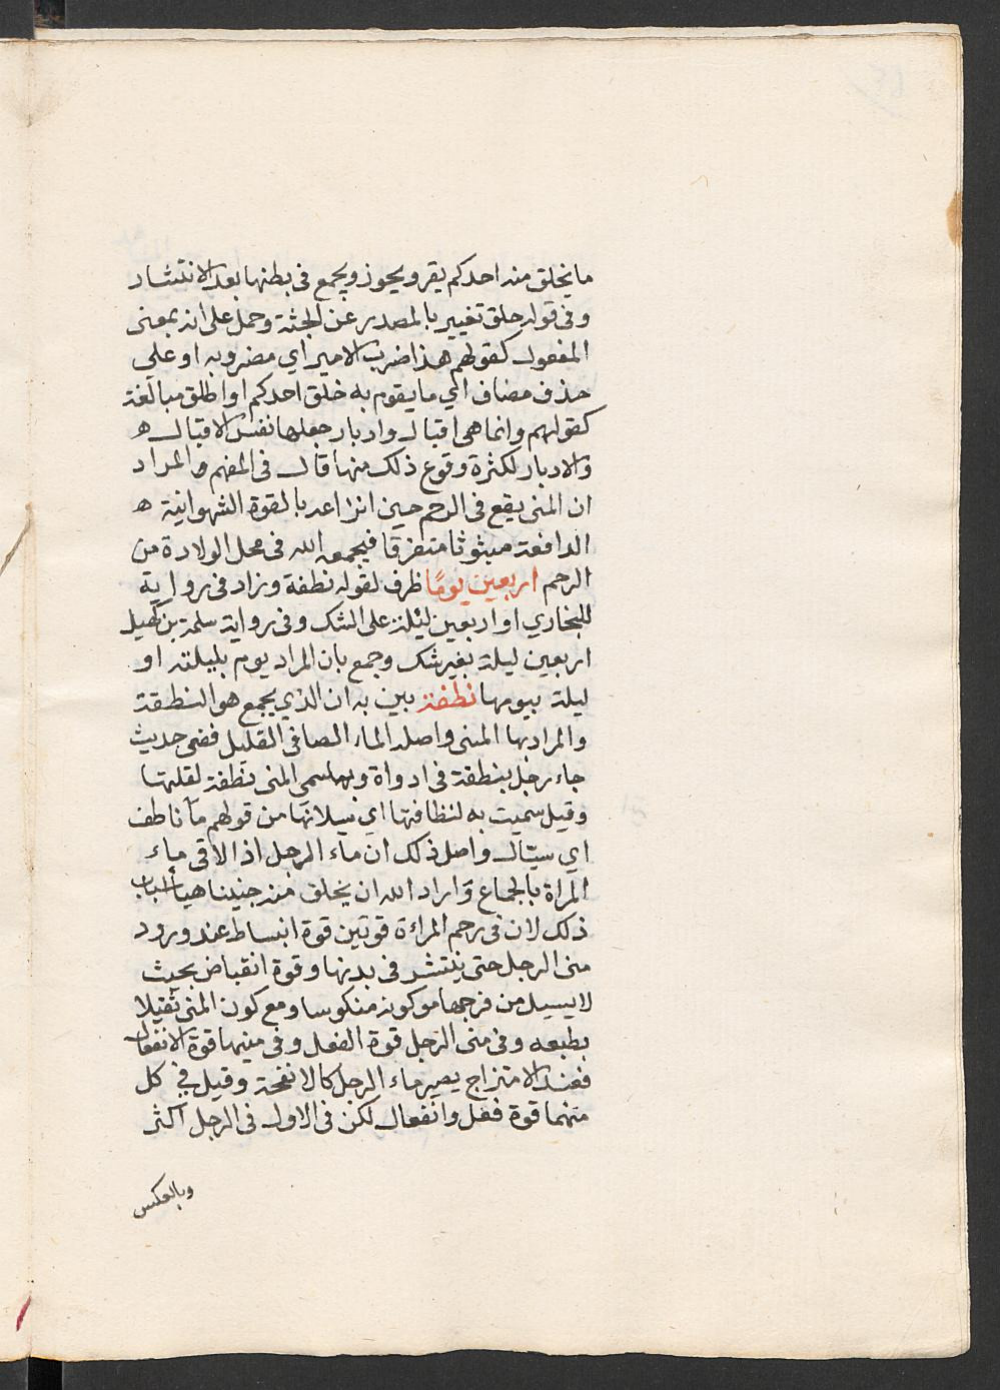 ما يخلق منه احدكم يقر ويحوز ويجمع في بطنها بعد الانتشار
وفي قوله خلق تغيير بالمصدر عن الجثة وحمل على انه بمعنى
المفعول كقولهم هذا ضرب الامير اي مضروبه او على
حذف مضاف الي ما يقوم به خلق احدكم او اطلق مبالغة
كقولهم وانما هي اقبال وادبار جعلها نفس الاقبال ه
والادبار لكثرة وقوع ذلك منها قال في المفهم والمراد
ان المنى يقع في الرحم حين انزاعه بالقوة الشهوانية ه
الدافعة مبثوثا متفرقا فيجمعه الله في محل الولادة من
الرحم اربعين يومًا ظرف لقوله نطفة وزاد في رواية
للبخاري او اربعين ليلة على الشك وفي رواية سلمة بن كهيل
اربعين ليلة بغير شك وجمع بان المراد يوم بليلته او
ليلة بيومها نطفة بين به ان الذي يجمع هو النطفة
والمراد بها المنى واصله الماء الصافي القليل ففي حديث
جاء رجل بنطفة في اداوة وبها سمى المنى نطفة لقلتها
وقيل سميت به لنظافتها اي سيلانها من قولهم ماء ناطف
اي سيّال واصل ذلك ان ماء الرجل اذا لاقى ماء
المراة بالجماع واراد الله ان يخلق منه جنينا هيأ اسباب
ذلك لان في رحم المراءة قوتين قوة انبساط عند ورود
منى الرجل حتى ينتشر في بدنها وقوة انقباض بحيث
لا يسيل من فرجها مع كونه منكوسا ومع كون المنى ثقيلا
بطبعه وفي منى الرجل قوة الفعل وفي منيها قوة الانفعال
فعند الامتزاج يصير ماء الرجل كالانفحة وقيل في كل
منهما قوة فعل وانفعال لكن في الاول في الرجل اكثر
وبالعكس